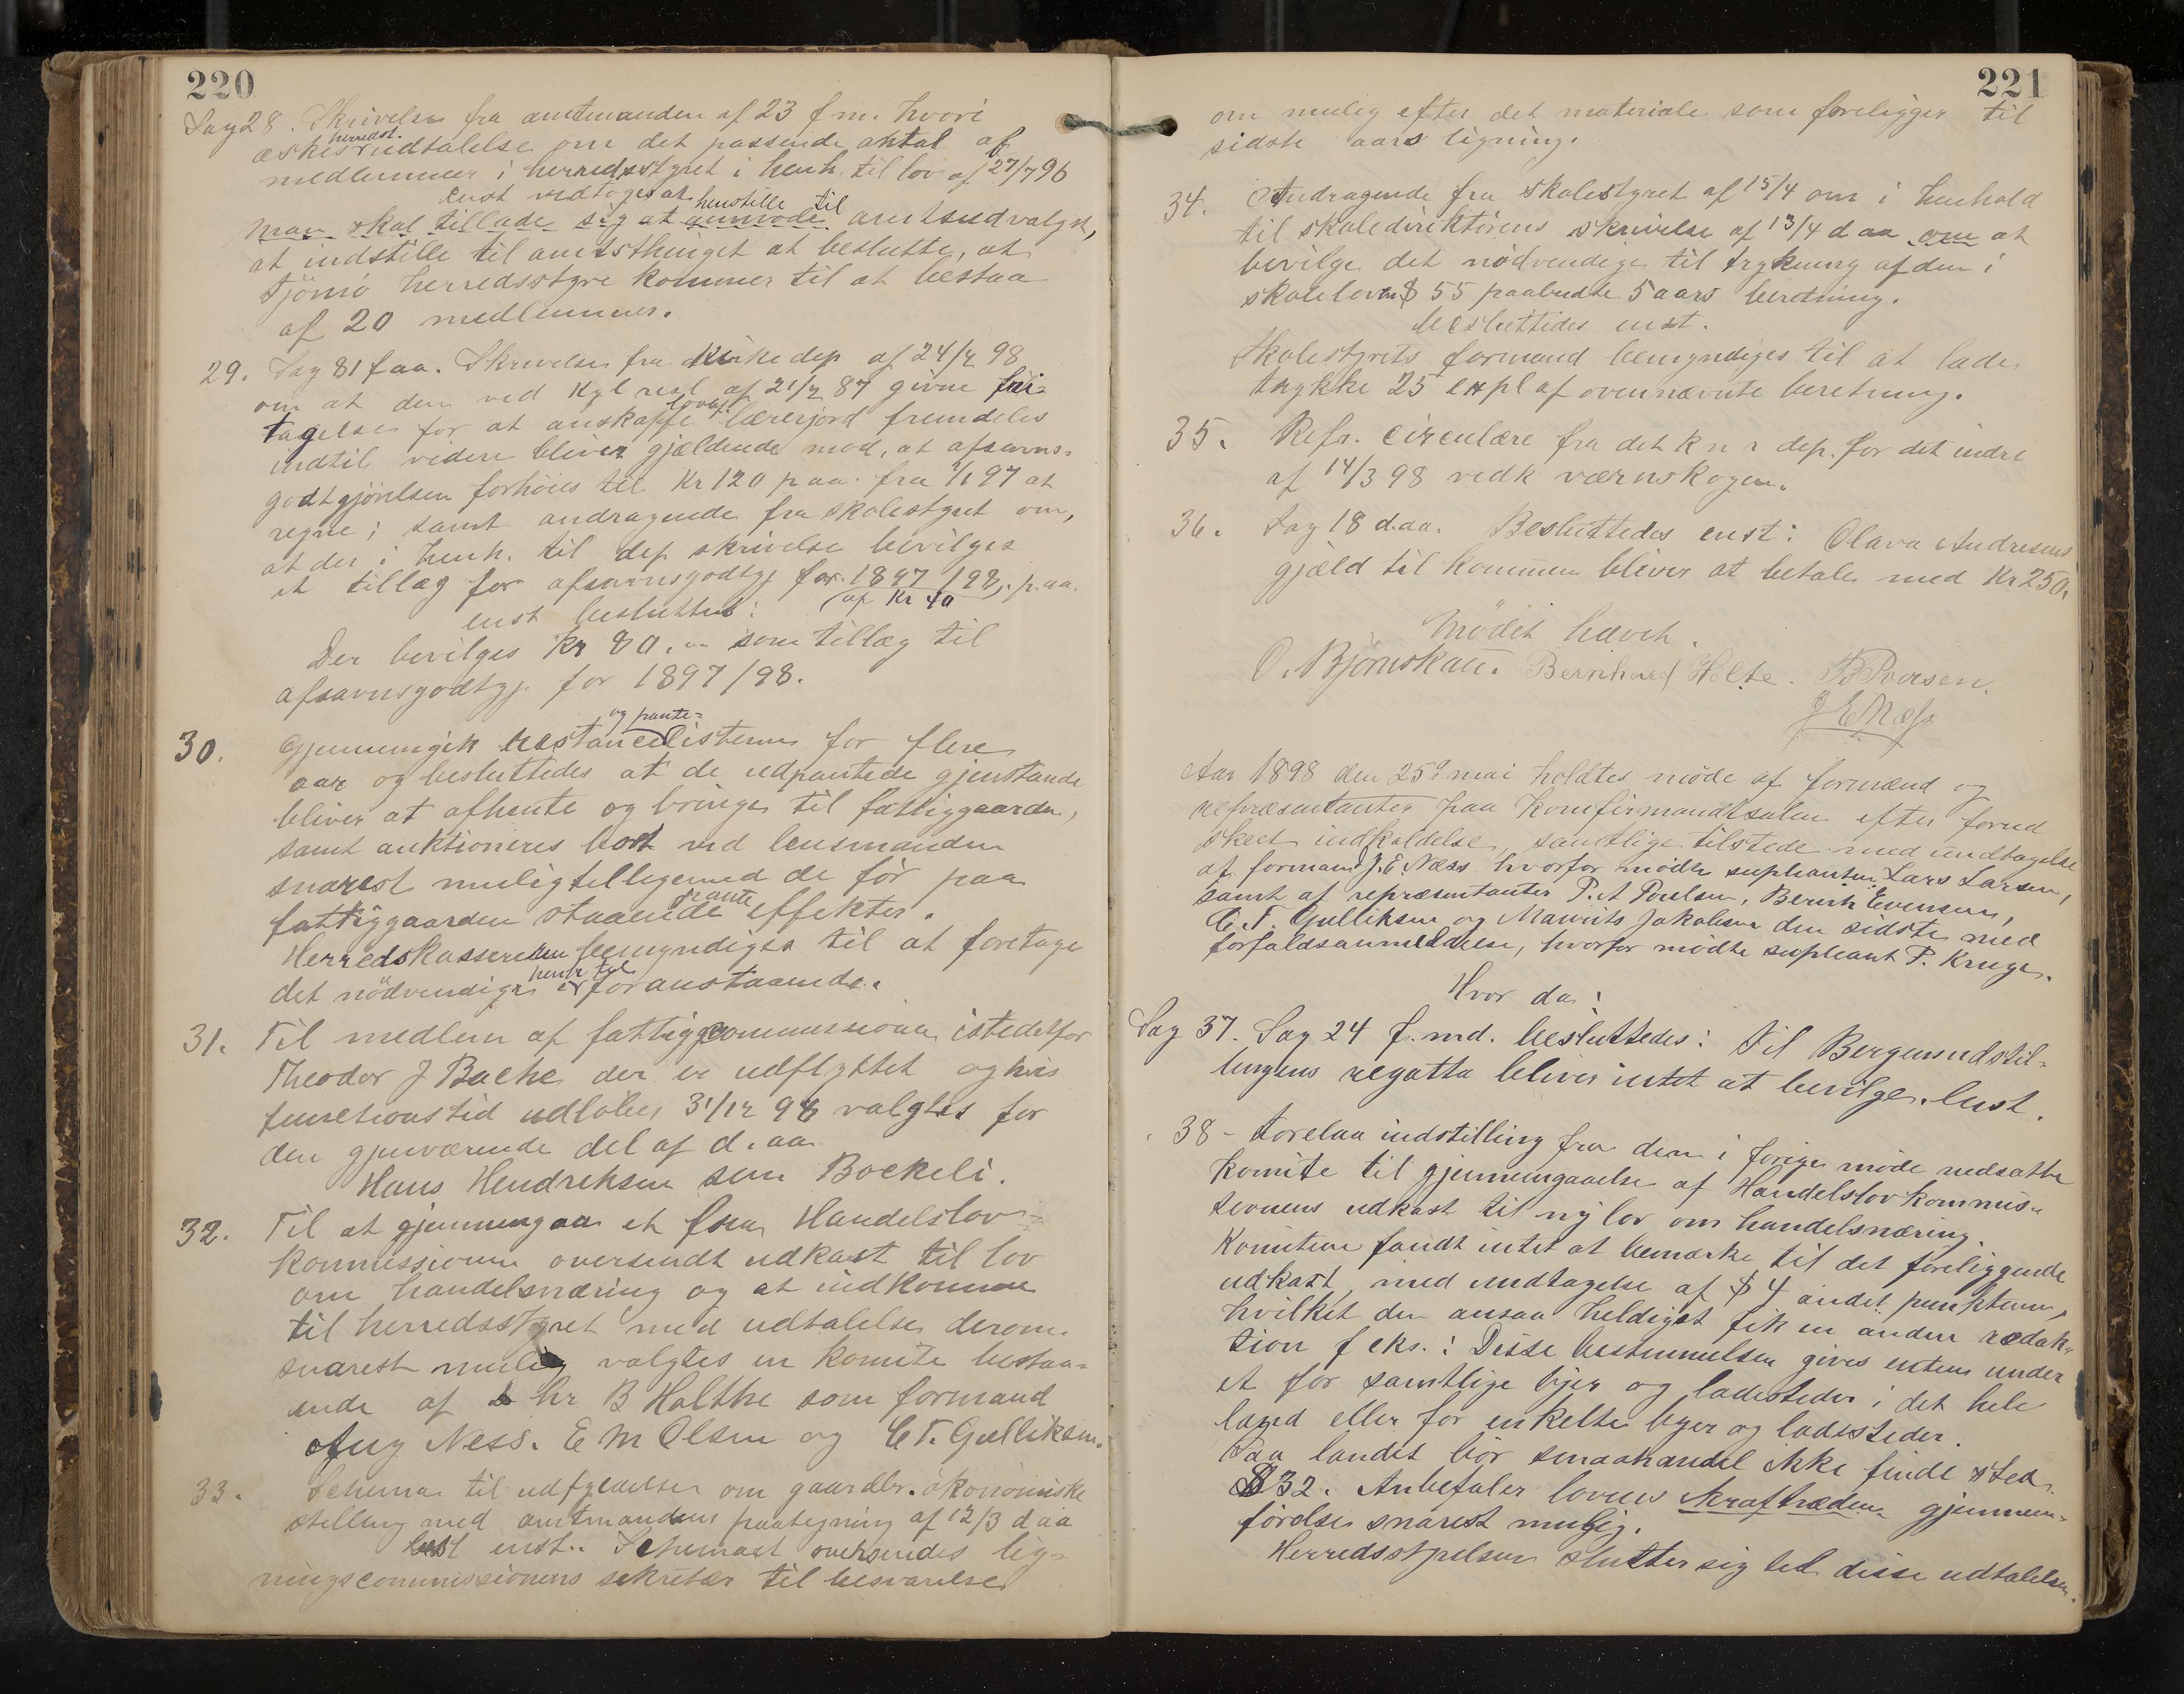 220
Sag 28. Skrivelse fra amtmanden af 23 f m. hvori
æskes herredst. udtalelse om det passende antal af
medlemmer i herredsstyret i henh. til lov af 27/7 96
enst vedtoges at henstille til
man skal tillade sig at anmode amtsudvalget,
at indstille til amtsthinget at beslutte, at
Tjömö herredsstyre kommer til at bestaa
af 20 medlemmer.
29. Sag 81 f aa. Skrivelse fra Kirkedep af 24/2 98
om at den ved Kgl resl af 21/2 87 givne fri-
tagelse for at anskaffe lovbef lærerjord fremdeles
indtil videre bliver gjældende mod, at afsavns-
godtgjörelsen forhöies til Kr 120 p aa. fra 1/1 97 at
regne; samt andragende fra skolestyret om,
at der i henh. til dep skrivelse bevilges
et tillæg for afsavnsgodtgj for 1897/98, p. aa.
af Kr 40
enst besluttet:
Der bevilges Kr 80.00 som tillæg til
afsavnsgodtgj. for 1897/98.
30. Gjennemgik restance og pante- listerne for flere
aar og besluttedes at de udpantede gjenstande
bliver at afhente og bringe til fattiggaarden,
samt auktioneres bort ved lensmanden
snarest mulig tilligemed de för paa
fattiggaarden staaende pante effekter.
Herredskassereren bemyndiges til at foretage
det nödvendige henh til foranstaaende.
31. Til medlem af fattigcommissionen istedetfor
Theodor J Bache der er udflyttet og hvis
functionstid udlöber 31/12 98 valgtes for
den gjenværende del af d. aa.
Hans Hendreksen sem Bockeli.
32. Til at gjennemgaa et fra Handelslov-
kommissionen oversendt udkast til lov
om handelsnæring og at indkomme
til herredsstyret med udtalelse derom
snarest mulig valgtes en komite bestaa-
ende af hr B Holthe som formand
Aug Ness. E M Olsen og C T. Gulliksen.
33. Schema til udfyldelse om gaardbr. ökonomiske
stilling med amtmandens paategning af 12/3 d aa
besl enst. Schemaet oversendes lig-
ningscommissionens sekretær til besvarelse
221
om mulig efter det materiale som foreligger til
sidste aars ligning.
34. Andragende fra skolestyret af 15/4 om i henhold
til skoledirektörens skrivelse af 13/4 d aa om at
bevilge det nödvendige til trykning af den i
skoleloven § 55 paabudte 5 aars beretning.
besluttedes enst.
Skolestyrets formand bemyndiges til at lade
trykke 25 expl af ovennævnte beretning.
35. Refr. circulære fra det k n r dep. for det indre
af 14/3 98 vedk værnskogen.
36. Sag 18 d.aa. Besluttedes enst: Olava Andresens
gjæld til kommunen bliver at betale med Kr 250.
Mödet hævet.
O. Björnskau. Bernhard Holte. B Poersen.
J E Næss
Aar 1898 den 25de mai holdtes möde af formænd og
repræsentanter paa Konfirmandtsalen efter forud
skeet indkaldelse, samtlige tilstede med undtagelse
af formand J. E. Næss hvorfor mödte supleanten Lars Larsen,
samt af repræsentanter P. A Poulsen, Berent Evensen,
C. T. Gulliksen og Mauritz Jakobsen den sidste med
forfaldsanmeldelse, hvorfor mödte supleant P. Kruge.
Hvor da:
Sag 37. Sag 24 f. md. besluttedes: Til Bergensudstil-
lingens regatta bliver intet at bevilge. Enst.
38 - Forelaa indstilling fra den i forige möde nedsatte
komite til gjennemgaaelse af Handelslovkommis-
sionens udkast til ny lov om handelsnæring.
Komiteen fandt intet at bemærke til det foreliggende
udkast, med undtagelse af § 4 andet punktum,
hvilket den ansaa heldigst fik en anden redak-
tion f eks.: Disse bestemmelser gives enten under
et for samtlige byer og ladesteder i det hele
land eller for enkelte byer og ladesteder.
Paa landet bör smaahandel ikke finde sted.
§ 32. Anbefaler lovens ikrafttræden gjennem-
förelse snarest mulig.
Herredsstyrelsen slutter sig til disse udtalelser.